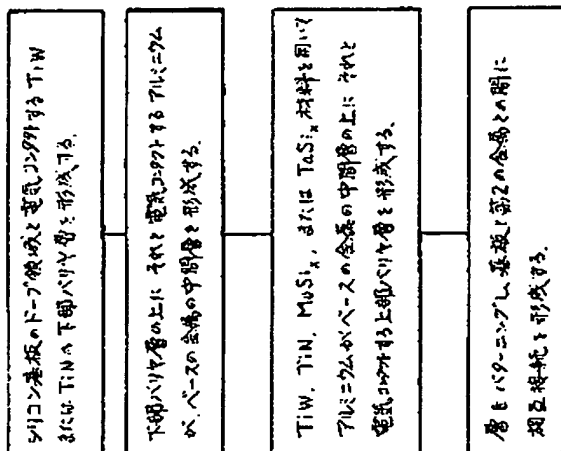 シリコン基板のドープ領域と電気コンタクトする TiW
または TiN の下部バリヤ層を形成する.
下部バリヤ層の上に それと電気コンタクトするアルミニウム
が、ベースの金属の中間層を形成する.
TiW, TiN, MoSiₓ, または TaSiₓ 材料を用いて
アルミニウムがベースの金属の中間層の上に それと
電気コンタクトする上部バリヤ層を形成する、
層をパターニングし、基板と第2の金属との間に
相互接続を形成する.